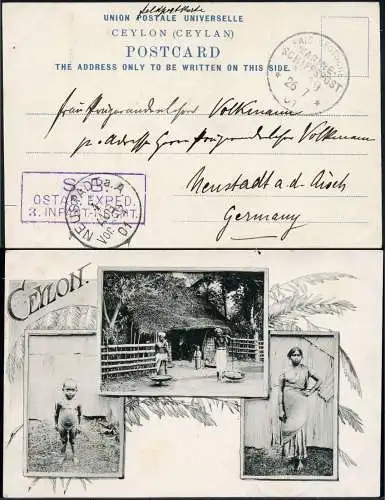 Feldpostkarte
UNION POSTALE UNIVERSELLE
CEYLON (CEYLAN)
POSTCARD
THE ADDRESS ONLY TO BE WRITTEN ON THIS SIDE.
MARINE-
SCHIFFSPOST
26 7
01
Frau Volkmann
p. Adresse Herrn Volkmann
Neustadt a.d. Aisch
Germany
S. B.
OSTAS. EXPED.
3. INFANT. REGMT.
NEUSTADT a. A.
Vor.
01
CEYLON.